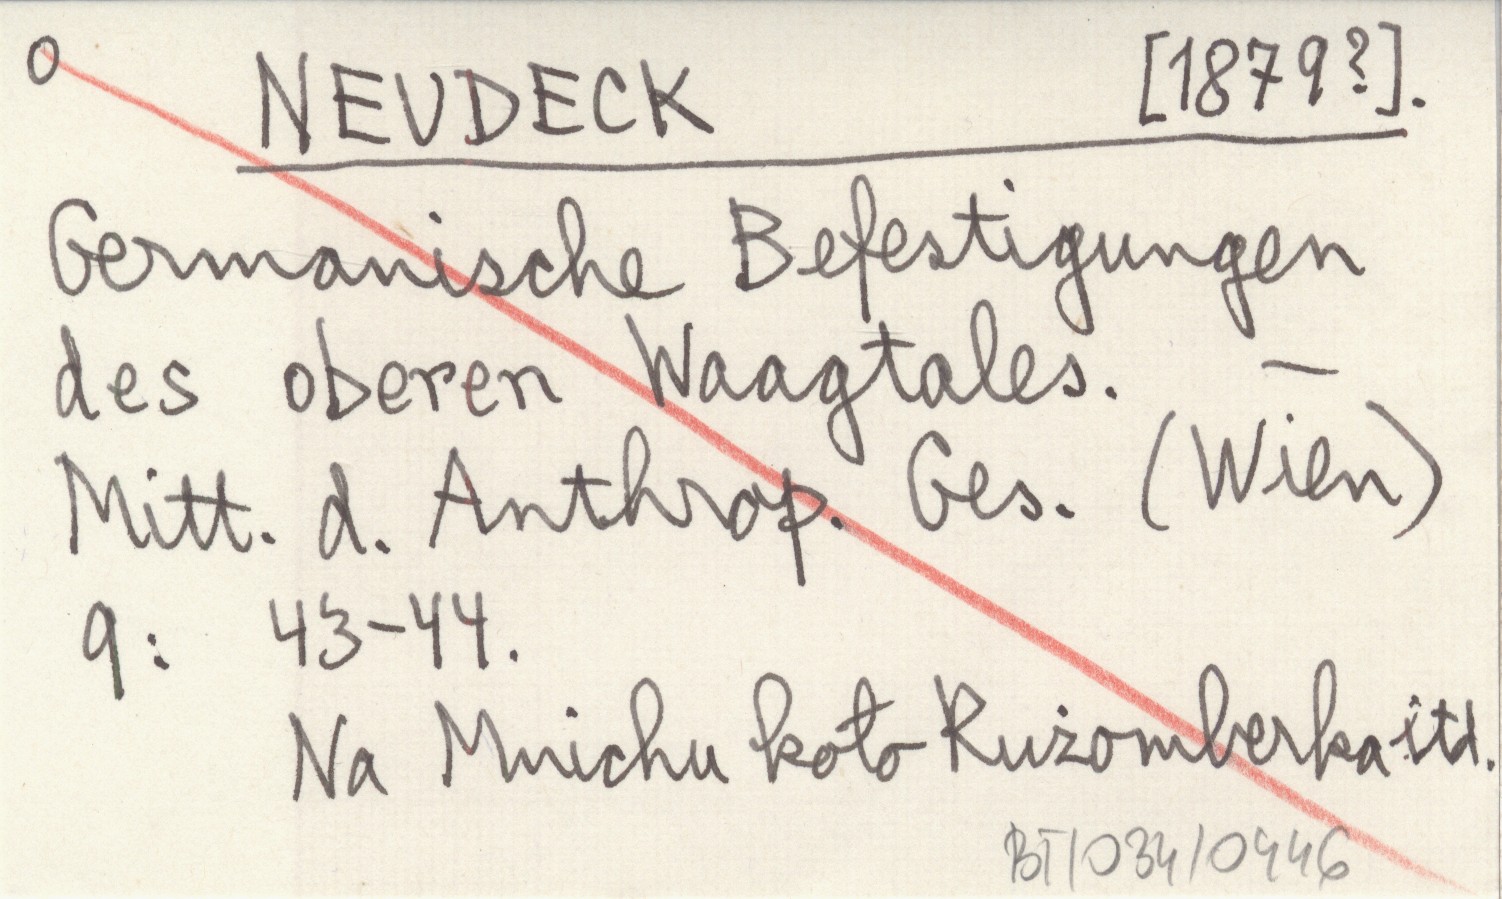 O NEUDECK [1879?].
Germanische Befestigungen
des oberen Waagtales. —
Mitt. d. Anthrop. Ges. (Wien)
9: 43-44.
Na Mnichu koło Rużomberka itd.
BT/034/0446